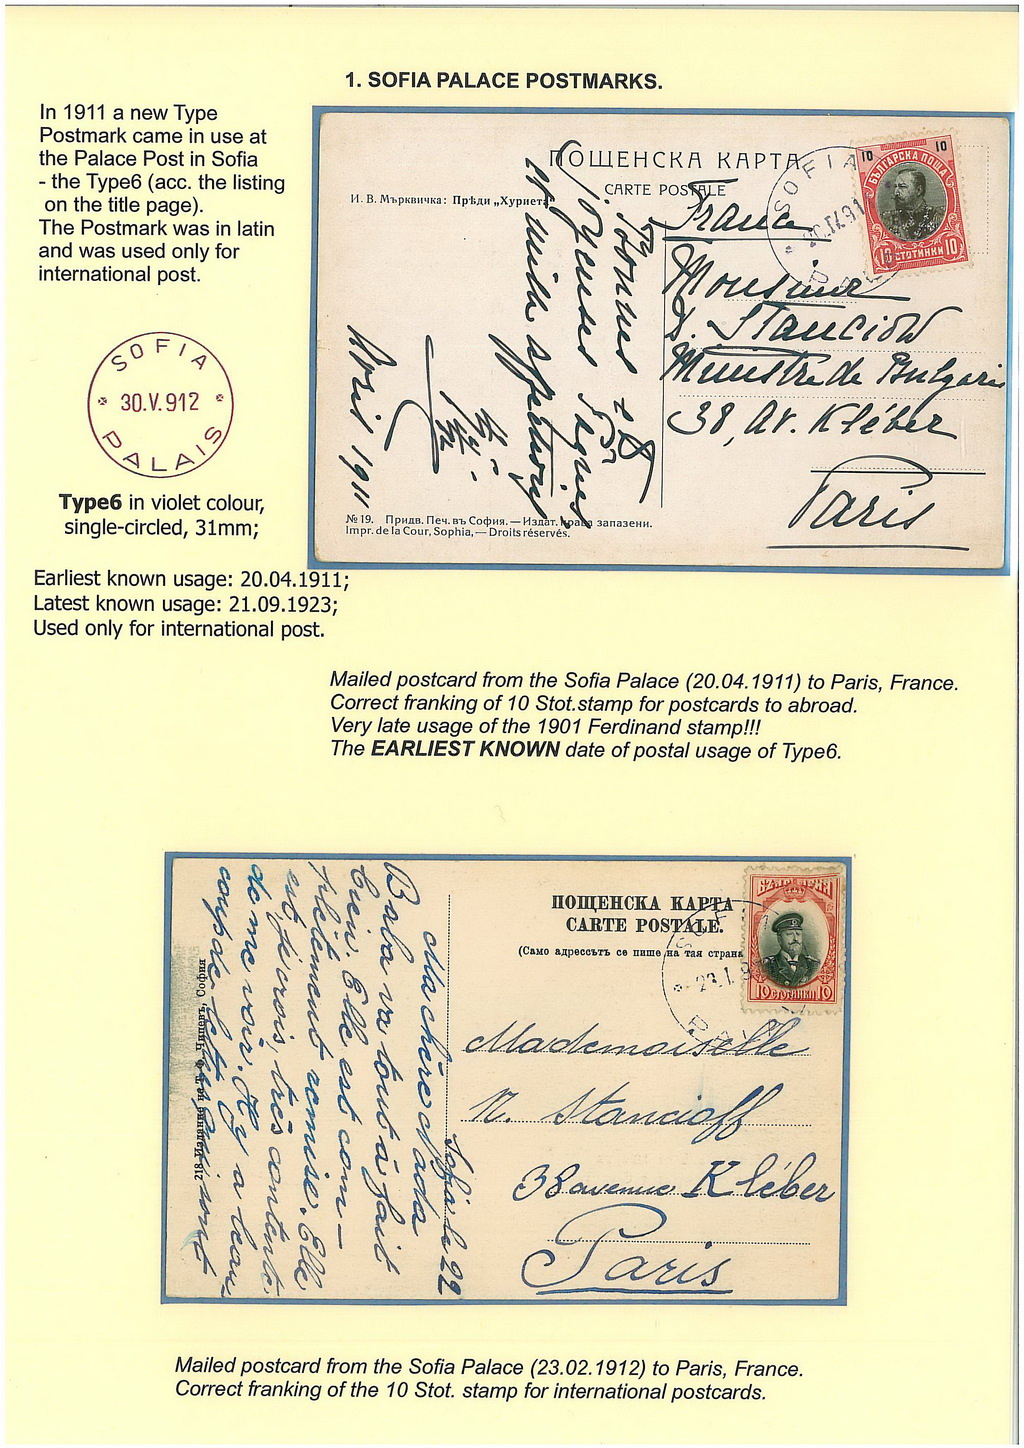 1. SOFIA PALACE POSTMARKS.
In 1911 a new Type
Postmark came in use at
the Palace Post in Sofia
- the Type6 (acc. the listing
on the title page).
The Postmark was in latin
and was used only for
international post.
SOFIA
30.V.912
PALAIS
Type6 in violet colour,
single-circled, 31mm;
Earliest known usage: 20.04.1911;
Latest known usage: 21.09.1923;
Used only for international post.
ПОЩЕНСКА КАРТА
CARTE POSTALE
И. В. Мърквичка: Прѣди „Хуриета"
SOFIA
20.IV.91
PAL
10 10
БЪЛГАРСКА ПОЩА
10 СТОТИНКИ 10
France
Monsieur
D. Stancioff
Ministre de Bulgarie
38, Av. Kléber
Paris
Bonnes
Avril 1911
№ 19. Придв. Печ. въ София. — Издат. права запазени.
Impr. de la Cour, Sophia, — Droits réservés.
Mailed postcard from the Sofia Palace (20.04.1911) to Paris, France.
Correct franking of 10 Stot.stamp for postcards to abroad.
Very late usage of the 1901 Ferdinand stamp!!!
The EARLIEST KNOWN date of postal usage of Type6.
ПОЩЕНСКА КАРТА
CARTE POSTALE.
(Само адрессътъ се пише на тая страна
БЪЛГАРИЯ
10 СТОТИНКИ 10
Mademoiselle
N. Stancioff
38 avenue Kléber
Paris
Sofia le 22
Ma chère Nada
Baba va tout à fait
bien. Elle est com-
plètement remise. Elle
est, je crois, très contente
de me voir. Il y a beau-
coup de
218 Издание на Т. Ф. Чипевъ, София
Mailed postcard from the Sofia Palace (23.02.1912) to Paris, France.
Correct franking of the 10 Stot. stamp for international postcards.